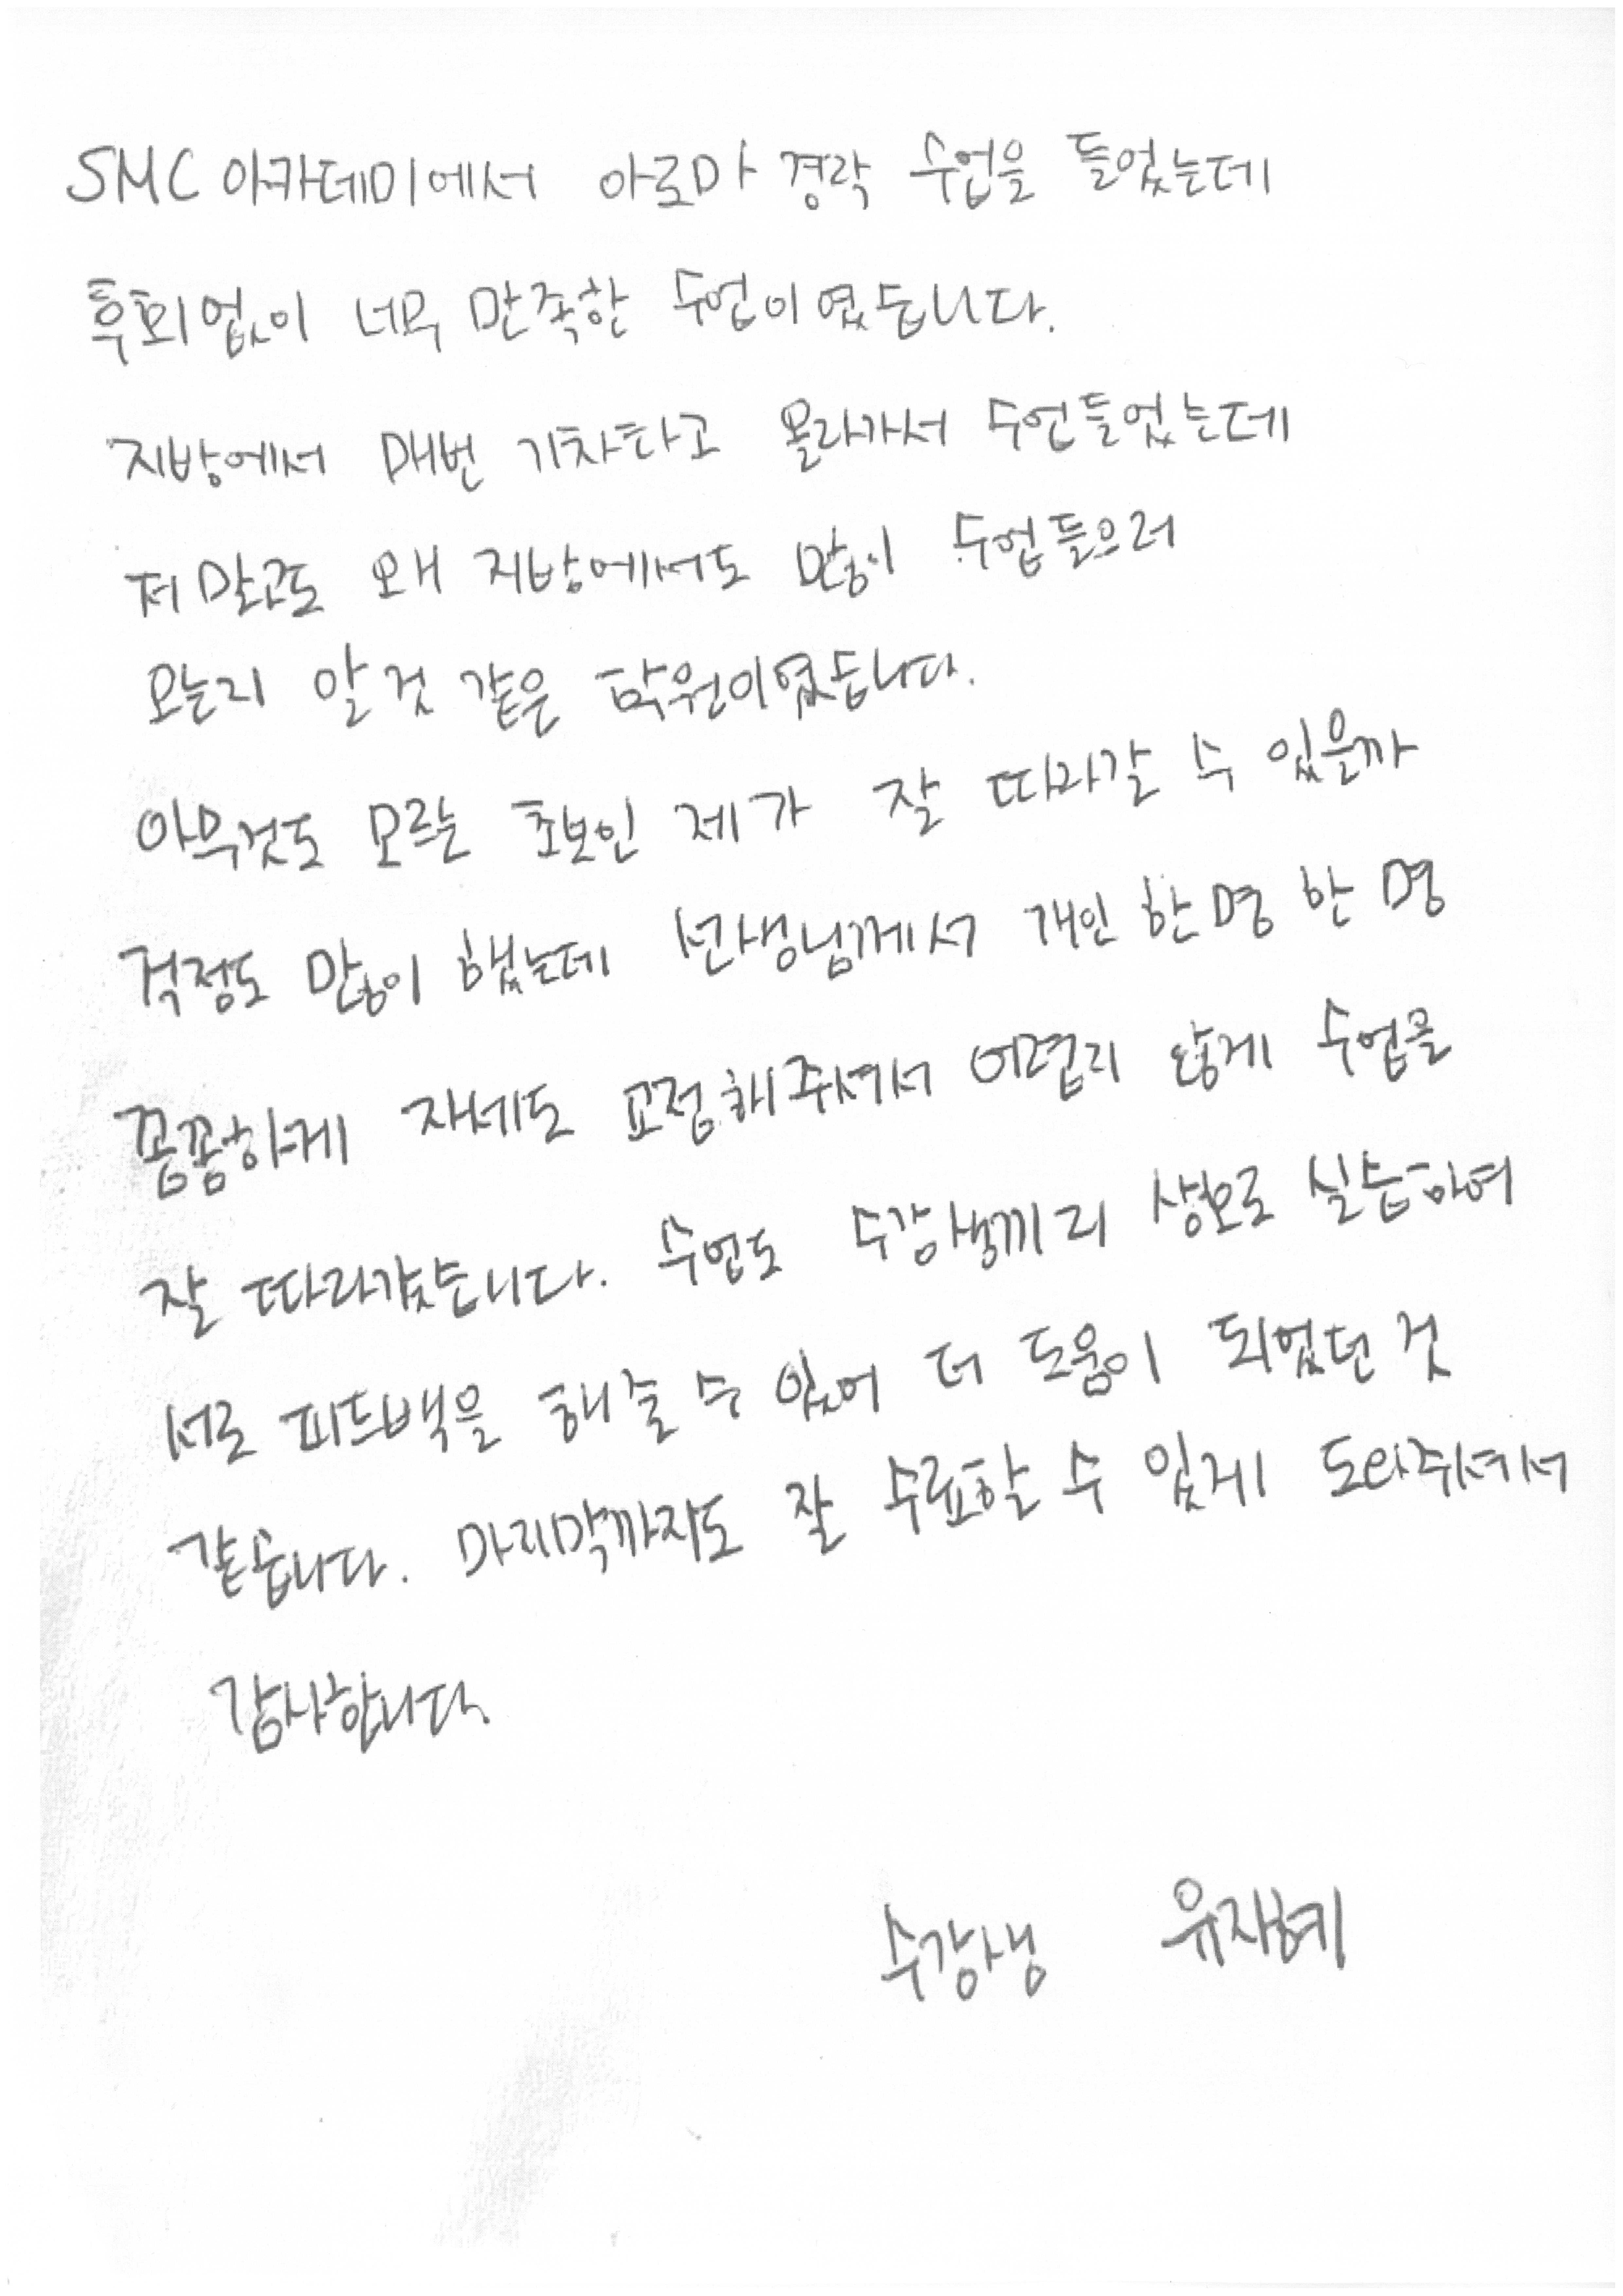 SMC 아카데미에서 아로마 경락 수업을 들었는데
후회없이 너무 만족한 수업이였습니다.
지방에서 매번 기차타고 올라가서 수업들었는데
저말고도 왜 지방에서도 많이 수업들으러
오는지 알 것 같은 학원이였습니다.
아무것도 모르는 초보인 제가 잘 따라갈 수 있을까
걱정도 많이 했는데 선생님께서 개인 한명 한 명
꼼꼼하게 자세도 교정해주셔서 어렵지 않게 수업을
잘 따라갔습니다. 수업도 수강생끼리 상호로 실습하여
서로 피드백을 해줄 수 있어 더 도움이 되었던 것
같습니다. 마지막까지도 잘 수료할 수 있게 도와주셔서
감사합니다.
수강생 유지혜